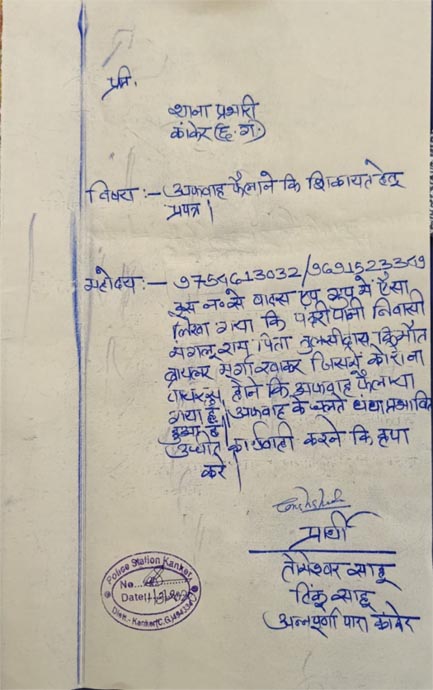 प्रति,
थाना प्रभारी
कांकेर (छ.ग.)
विषय :- अफवाह फैलाने कि शिकायत हेतु
प्रपत्र।
महोदय :- 9754613032/9691523349
इस नं. से वाट्स एप ग्रुप में ऐसा
लिखा गया कि पटरीपानी निवासी
मंगलू राम पिता तुलसीदास कि मौत
ब्रायलर मुर्गा खाकर जिसमें कोरोना
वायरस होने कि अफवाह फैलाया
गया है। अफवाह के चलते धंधा प्रभावित
हुआ है।
उचित कार्यवाही करने कि कृपा
करे।
प्रार्थी
तोमेश्वर साहू
टिंकू साहू
अन्नपूर्णा पारा कांकेर
Police Station Kanker
No.
Date
Distt.- Kanker (C.G.) 494334